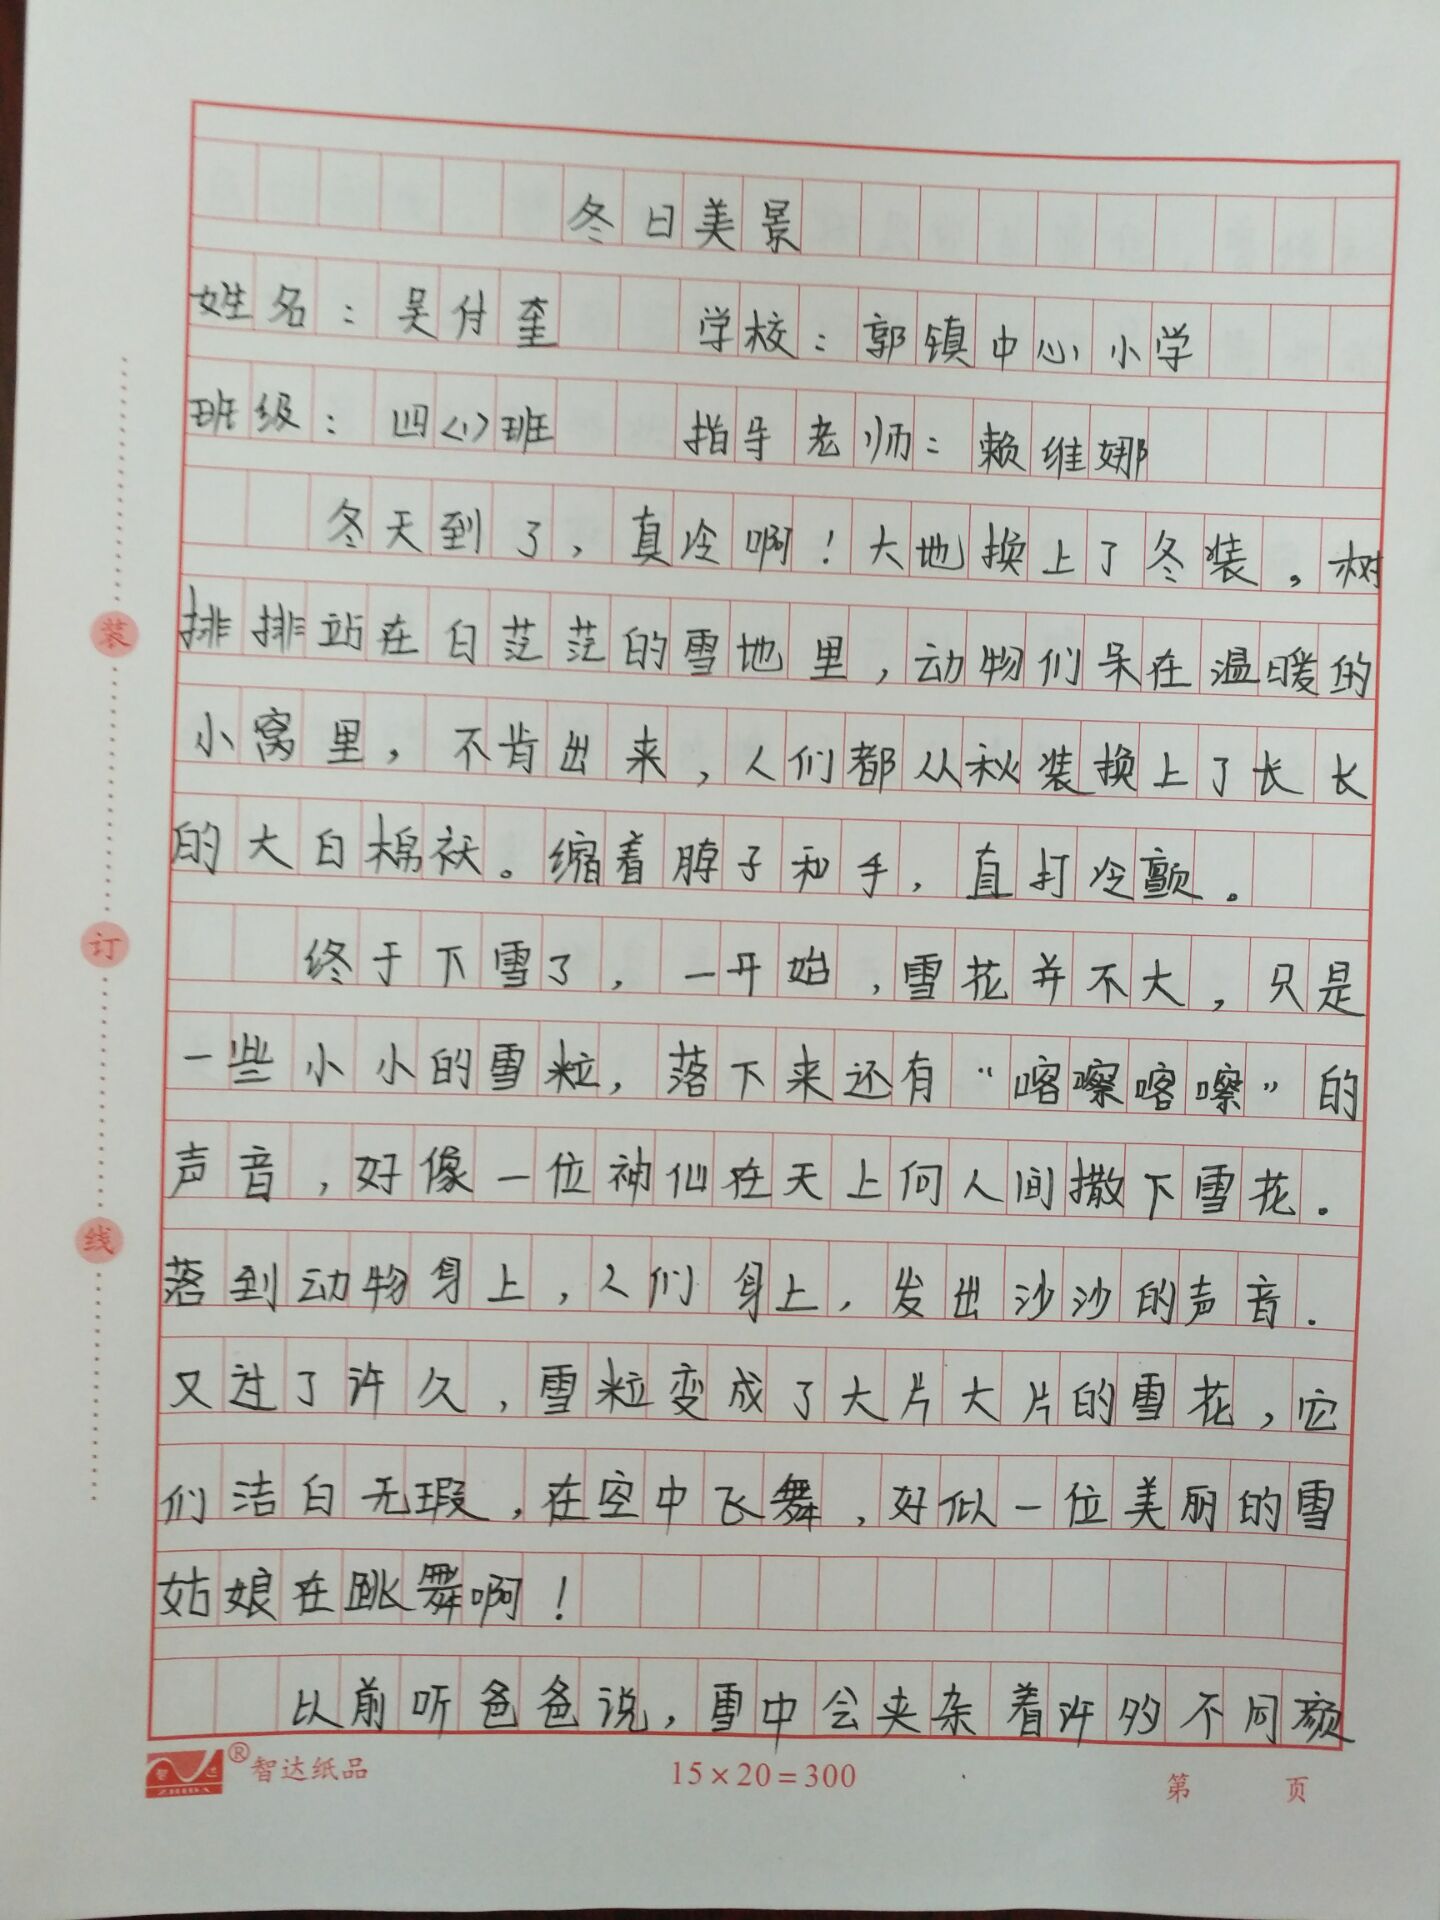 冬日美景
姓名：吴付奎 学校：郭镇中心小学
班级：四(1)班 指导老师：赖维娜
冬天到了，真冷啊！大地换上了冬装。树
排排站在白茫茫的雪地里，动物们呆在温暖的
小窝里，不肯出来，人们都从秋装换上了长长
的大白棉袄。缩着脖子和手，直打冷颤。
终于下雪了，一开始，雪花并不大，只是
一些小小的雪粒，落下来还有“喀嚓喀嚓”的
声音，好像一位神仙在天上向人间撒下雪花.
落到动物身上，人们身上，发出沙沙的声音.
又过了许久，雪粒变成了大片大片的雪花，它
们洁白无瑕，在空中飞舞，好似一位美丽的雪
姑娘在跳舞啊！
以前听爸爸说，雪中会夹杂着许的不同颜
装
订
线
智达
智达纸品
15×20=300
第 页